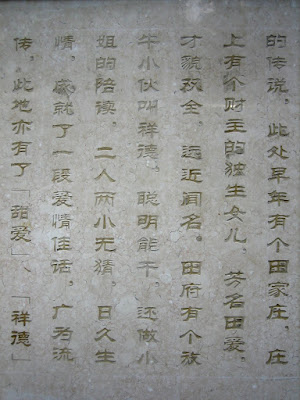 的传说，此处早年有个田家庄，庄
上有个财主的独生女儿，芳名田爱，
才貌双全，远近闻名。田府有个放
牛小伙叫祥德，聪明能干，还做小
姐的陪读，二人两小无猜，日久生
情，成就了一段爱情佳话，广为流
传，此地亦有了「甜爱」、「祥德」